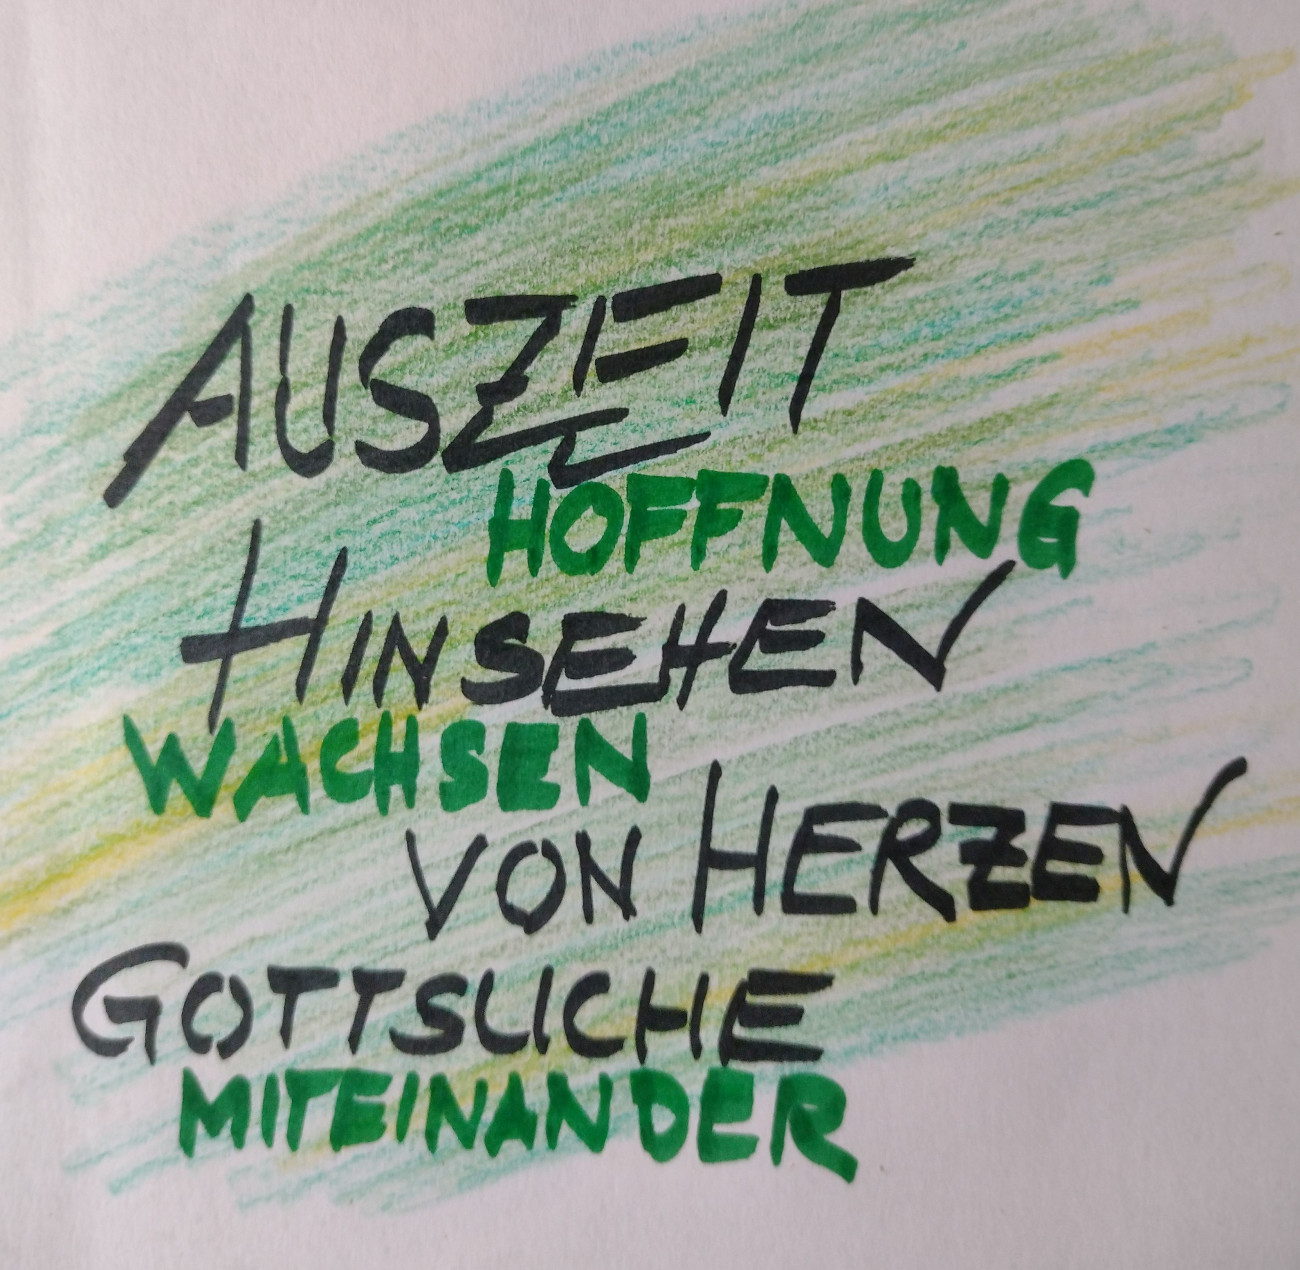 AUSZEIT
HOFFNUNG
HINSEHEN
WACHSEN
VON HERZEN
GOTTSUCHE
MITEINANDER